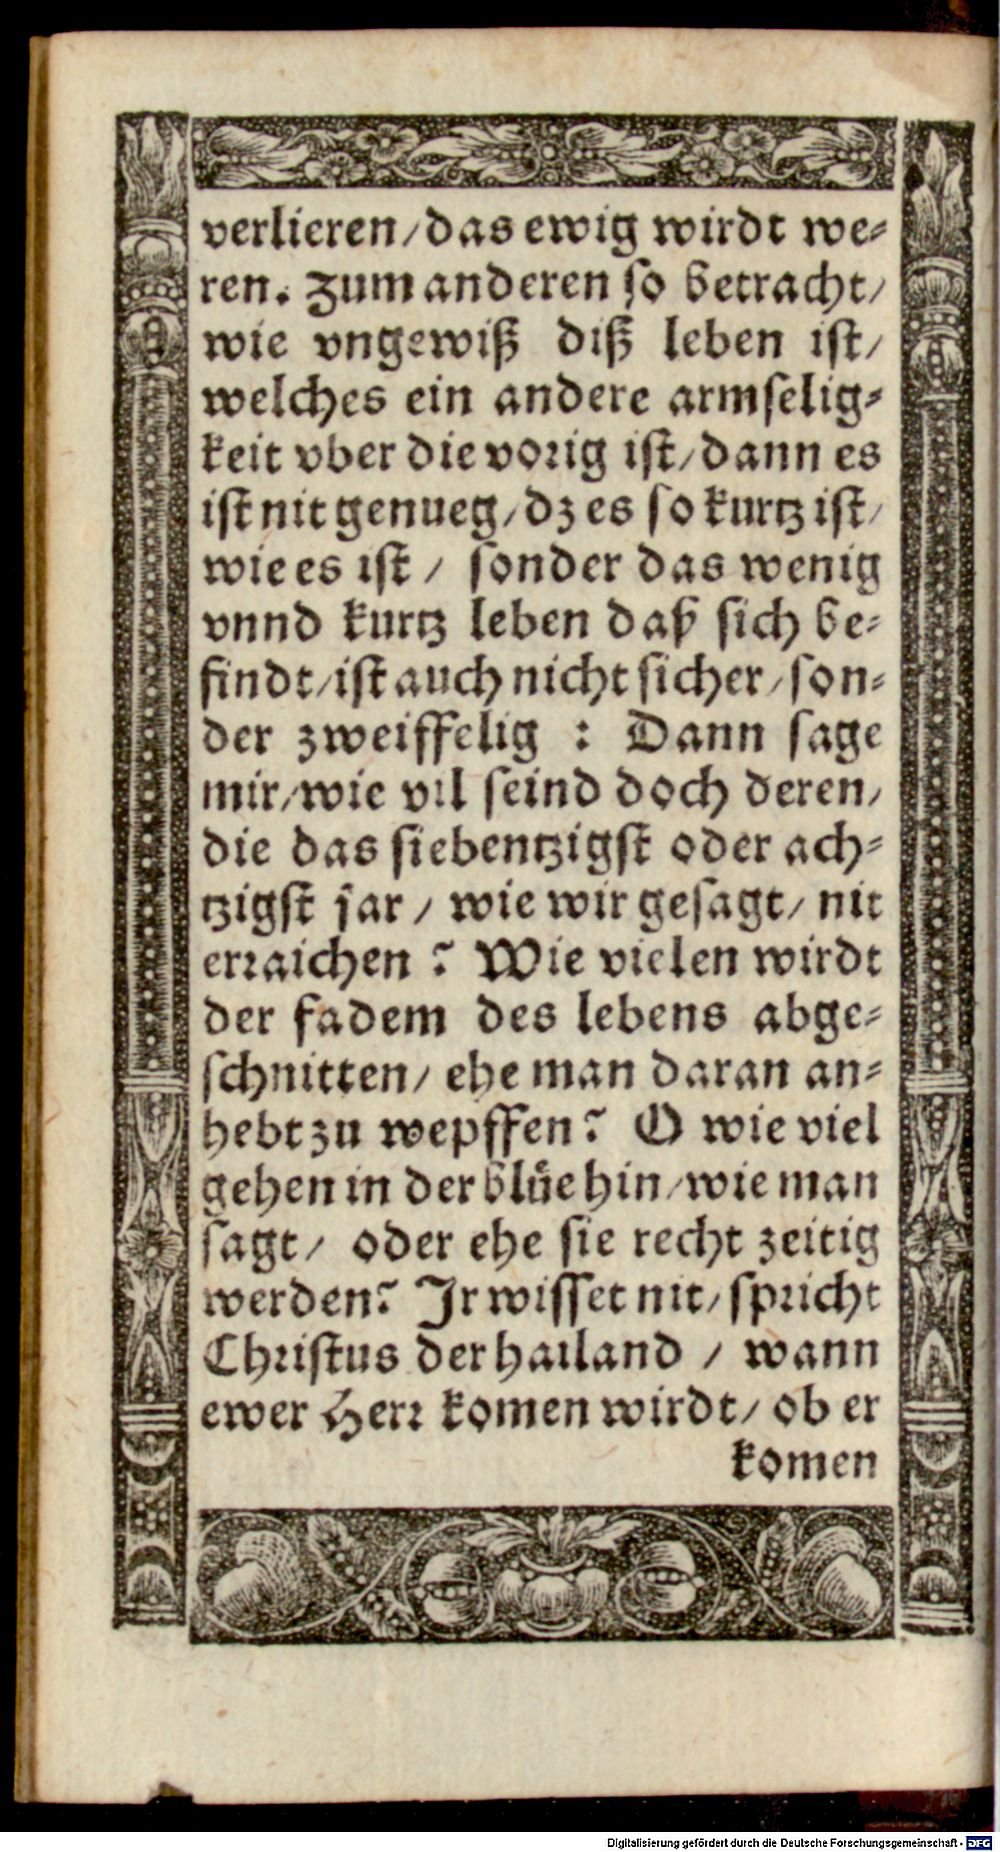 verlieren/das ewig wirdt we⸗
ren. Zum anderen so betracht/
wie vngewiß diß leben ist/
welches ein andere armselig⸗
keit vber die vorig ist/dann es
ist nit genueg/dz es so kurtz ist/
wie es ist / sonder das wenig
vnnd kurtz leben daß sich be⸗
findt/ist auch nicht sicher/son⸗
der zweiffelig : Dann sage
mir/wie vil seind doch deren/
die das siebentzigst oder ach⸗
tzigst jar / wie wir gesagt/ nit
erraichen ? Wie vielen wirdt
der fadem des lebens abge⸗
schnitten/ ehe man daran an⸗
hebt zu wepffen? O wie viel
gehen in der blüe hin/wie man
sagt/ oder ehe sie recht zeitig
werden? Jr wisset nit/spricht
Christus der hailand / wann
ewer Herr komen wirdt/ ob er
komen
Digitalisierung gefördert durch die Deutsche Forschungsgemeinschaft - DFG